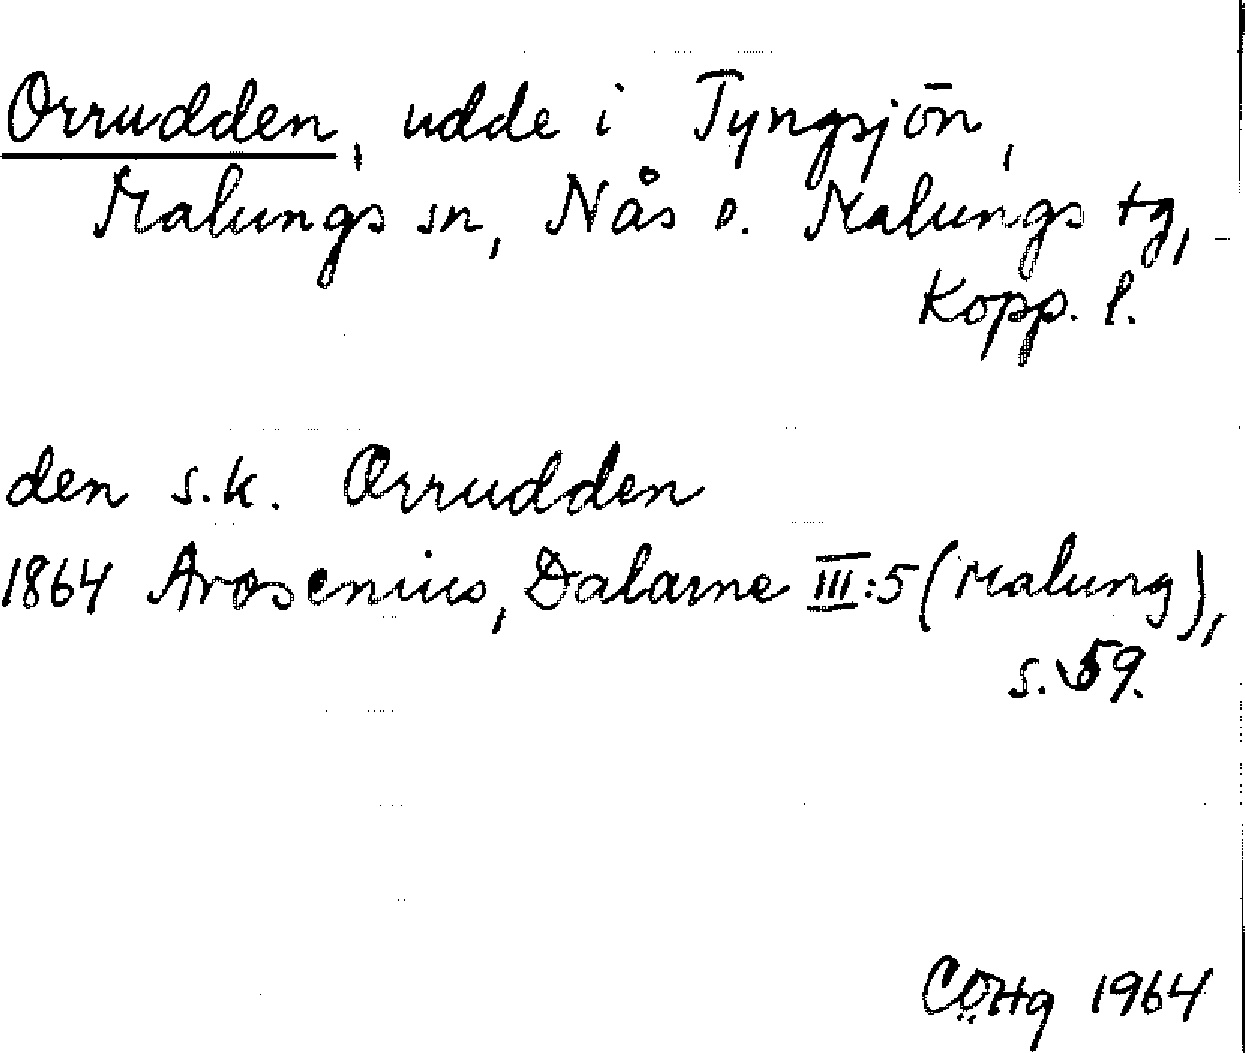 Orrudden, udde i Tyngsjön,
Malungs sn, Nås o. Malungs tg,
Kopp. l.
den s.k. Orrudden
1864 Arosenius, Dalarne III:5 (Malung),
s. 59.
CÖHg 1964